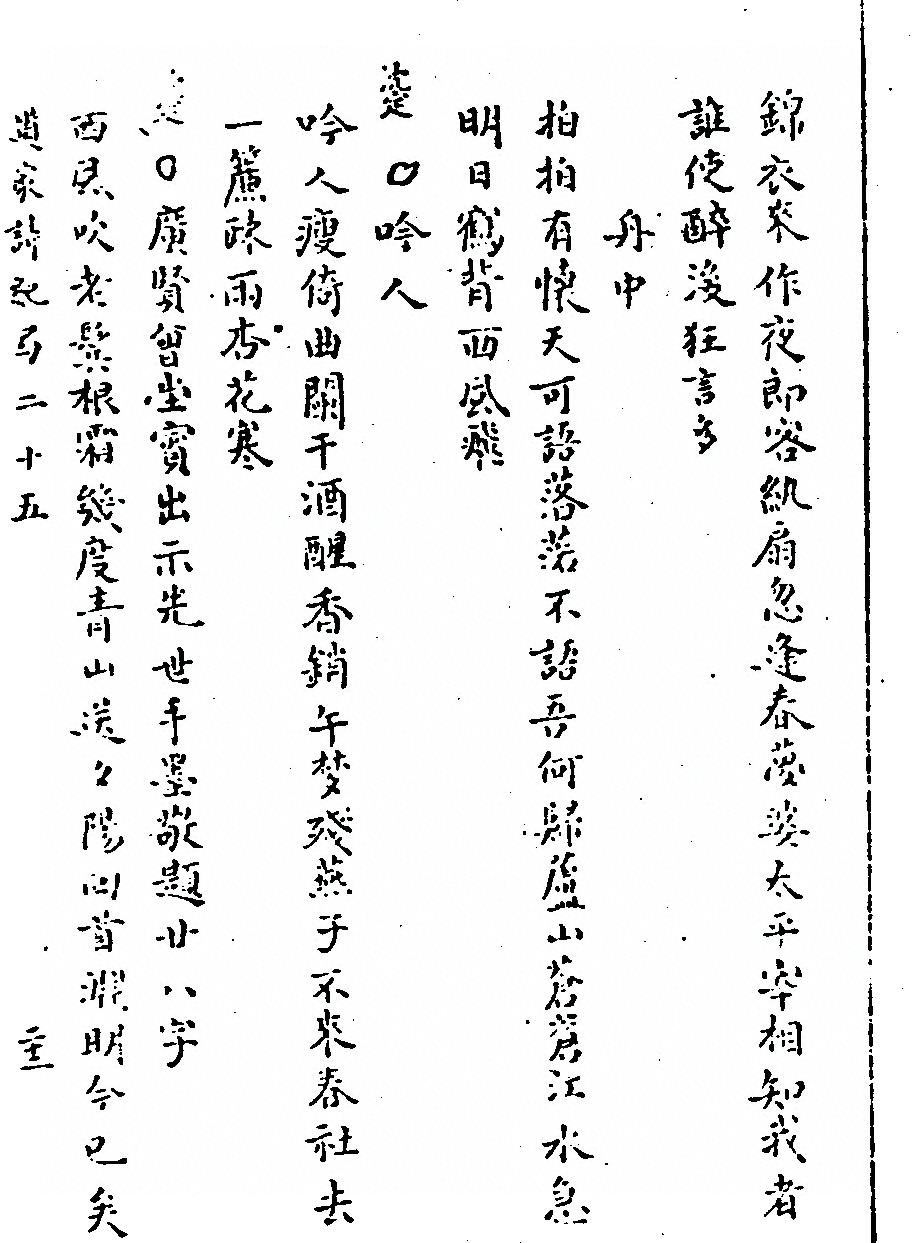 錦衣來作夜郎客紈扇忽逢春夢婆太平宰相知我者
誰使醉後狂言多
舟中
拍拍有懷天可語落落不語吾何歸廬山蒼蒼江水急
明日鶴背西風飛
〇吟人
吟人瘦倚曲闌干酒醒香銷午梦殘燕子不來春社去
一簾疎雨杏花寒
〇廣賢曾坐賓出示先世手墨敬題廿八字
西風吹老鬂根霜幾度青山送夕陽回首淵明今已矣
家詩二十五